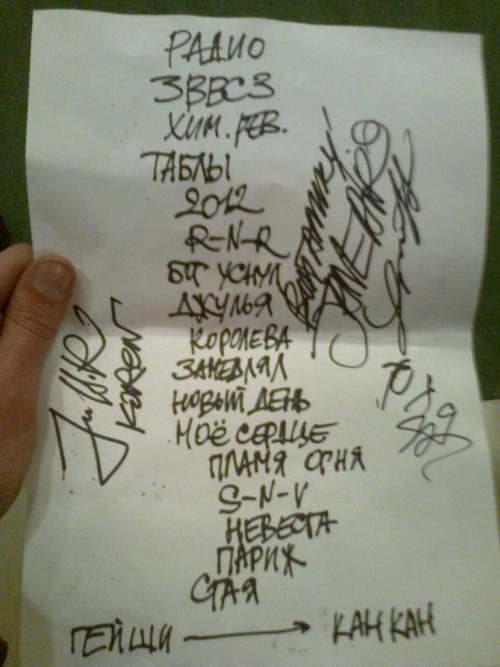 РАДИО
ЗВВСЗ
ХИМ. РЕВ.
ТАБЛЫ
2012
R-N-R
БОГ УСНУЛ
ДЖУЛЬЯ
КОРОЛЕВА
ЗАМЕДЛЯЛ
НОВЫЙ ДЕНЬ
МОЁ СЕРДЦЕ
ПЛАМЯ ОГНЯ
S-N-V
НЕВЕСТА
ПАРИЖ
СТАЯ
ГЕЙШИ → КАНКАН
KOREN